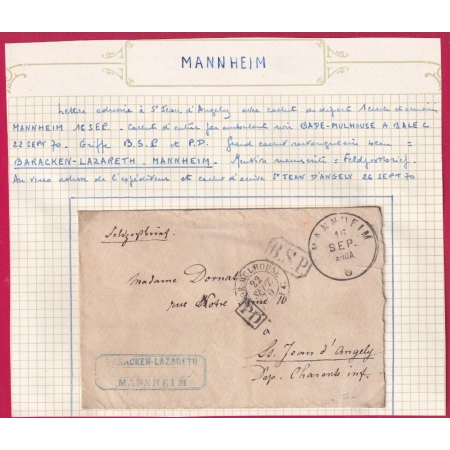 MANNHEIM
Lettre adressée à St Jean d'Angely avec cachet de départ 1 cercle
MANNHEIM 16 SEP. - Cachet d'entrée par ambulant noir BADE-MULHOUSE A BALE C
22 SEPT 70. Griffe B.S.P. et P.D. Grand cachet rectangulaire bleu =
BARACKEN-LAZARETH - MANNHEIM. Mention manuscrite = Feldpostbrief.
Au verso adresse de l'expéditeur et cachet d'arrivée St JEAN D'ANGELY 26 SEPT 70
Feldpostbrief.
B.S.P.
MANNHEIM
16
SEP.
MULHOUSE
22
SEPT
70
PD
Madame Dornat
rue Notre 10
à
St. Jean d'Angely
Dép. Charente inf.
BARACKEN-LAZARETH
MANNHEIM